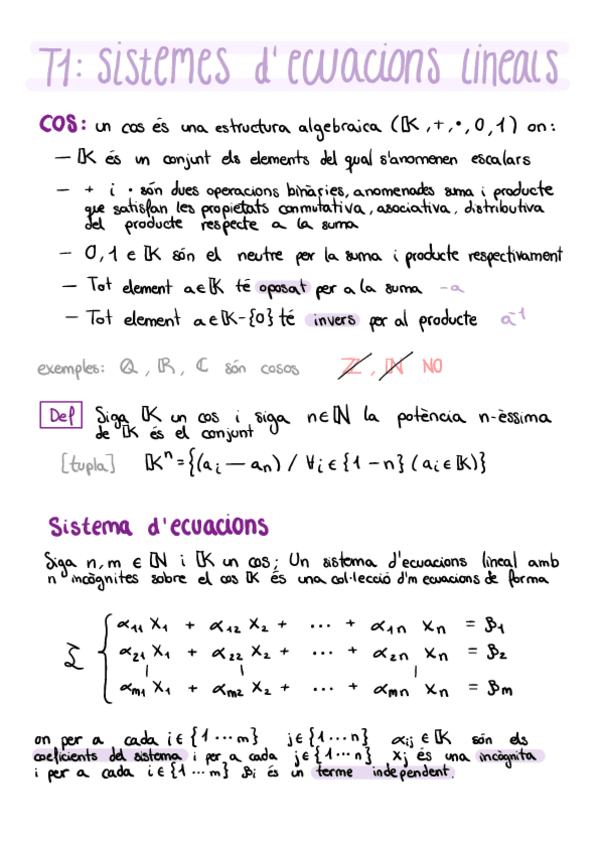 T1: sistemes d'ecuacions lineals
COS: un cos és una estructura algebraica (𝕂, +, ·, 0, 1) on:
— 𝕂 és un conjunt els elements del qual s'anomenen escalars
— + i · són dues operacions binàries, anomenades suma i producte
que satisfan les propietats conmutativa, asociativa, distributiva
del producte respecte a la suma
— 0, 1 ∈ 𝕂 són el neutre per la suma i producte respectivament
— Tot element a∈𝕂 té oposat per a la suma -a
— Tot element a∈𝕂-{0} té invers per al producte a⁻¹
exemples: ℚ, ℝ, ℂ són cosos ℤ, ℕ NO
Def Siga 𝕂 un cos i siga n∈ℕ la potència n-èssima
de 𝕂 és el conjunt
[tupla] 𝕂ⁿ = {(aᵢ — aₙ) / ∀i ∈ {1 - n} (aᵢ ∈ 𝕂)}
Sistema d'ecuacions
Siga n, m ∈ ℕ i 𝕂 un cos; Un sistema d'ecuacions lineal amb
n incògnites sobre el cos 𝕂 és una col·lecció d'm ecuacions de forma
α₁₁ X₁ + α₁₂ X₂ + ... + α₁ₙ Xₙ = β₁
Σ { α₂₁ X₁ + α₂₂ X₂ + ... + α₂ₙ Xₙ = β₂
αₘ₁ X₁ + αₘ₂ X₂ + ... + αₘₙ Xₙ = βₘ
on per a cada i ∈ {1 ... m} j ∈ {1 ... n} αᵢⱼ ∈ 𝕂 són els
coeficients del sistema i per a cada j ∈ {1 ... n} Xⱼ és una incògnita
i per a cada i ∈ {1 ... m} βᵢ és un terme independent.